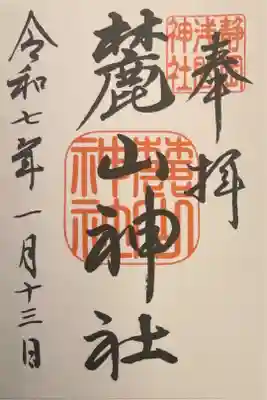 奉拝
静岡浅間神社
麓山神社
麓山神社
令和七年一月十三日